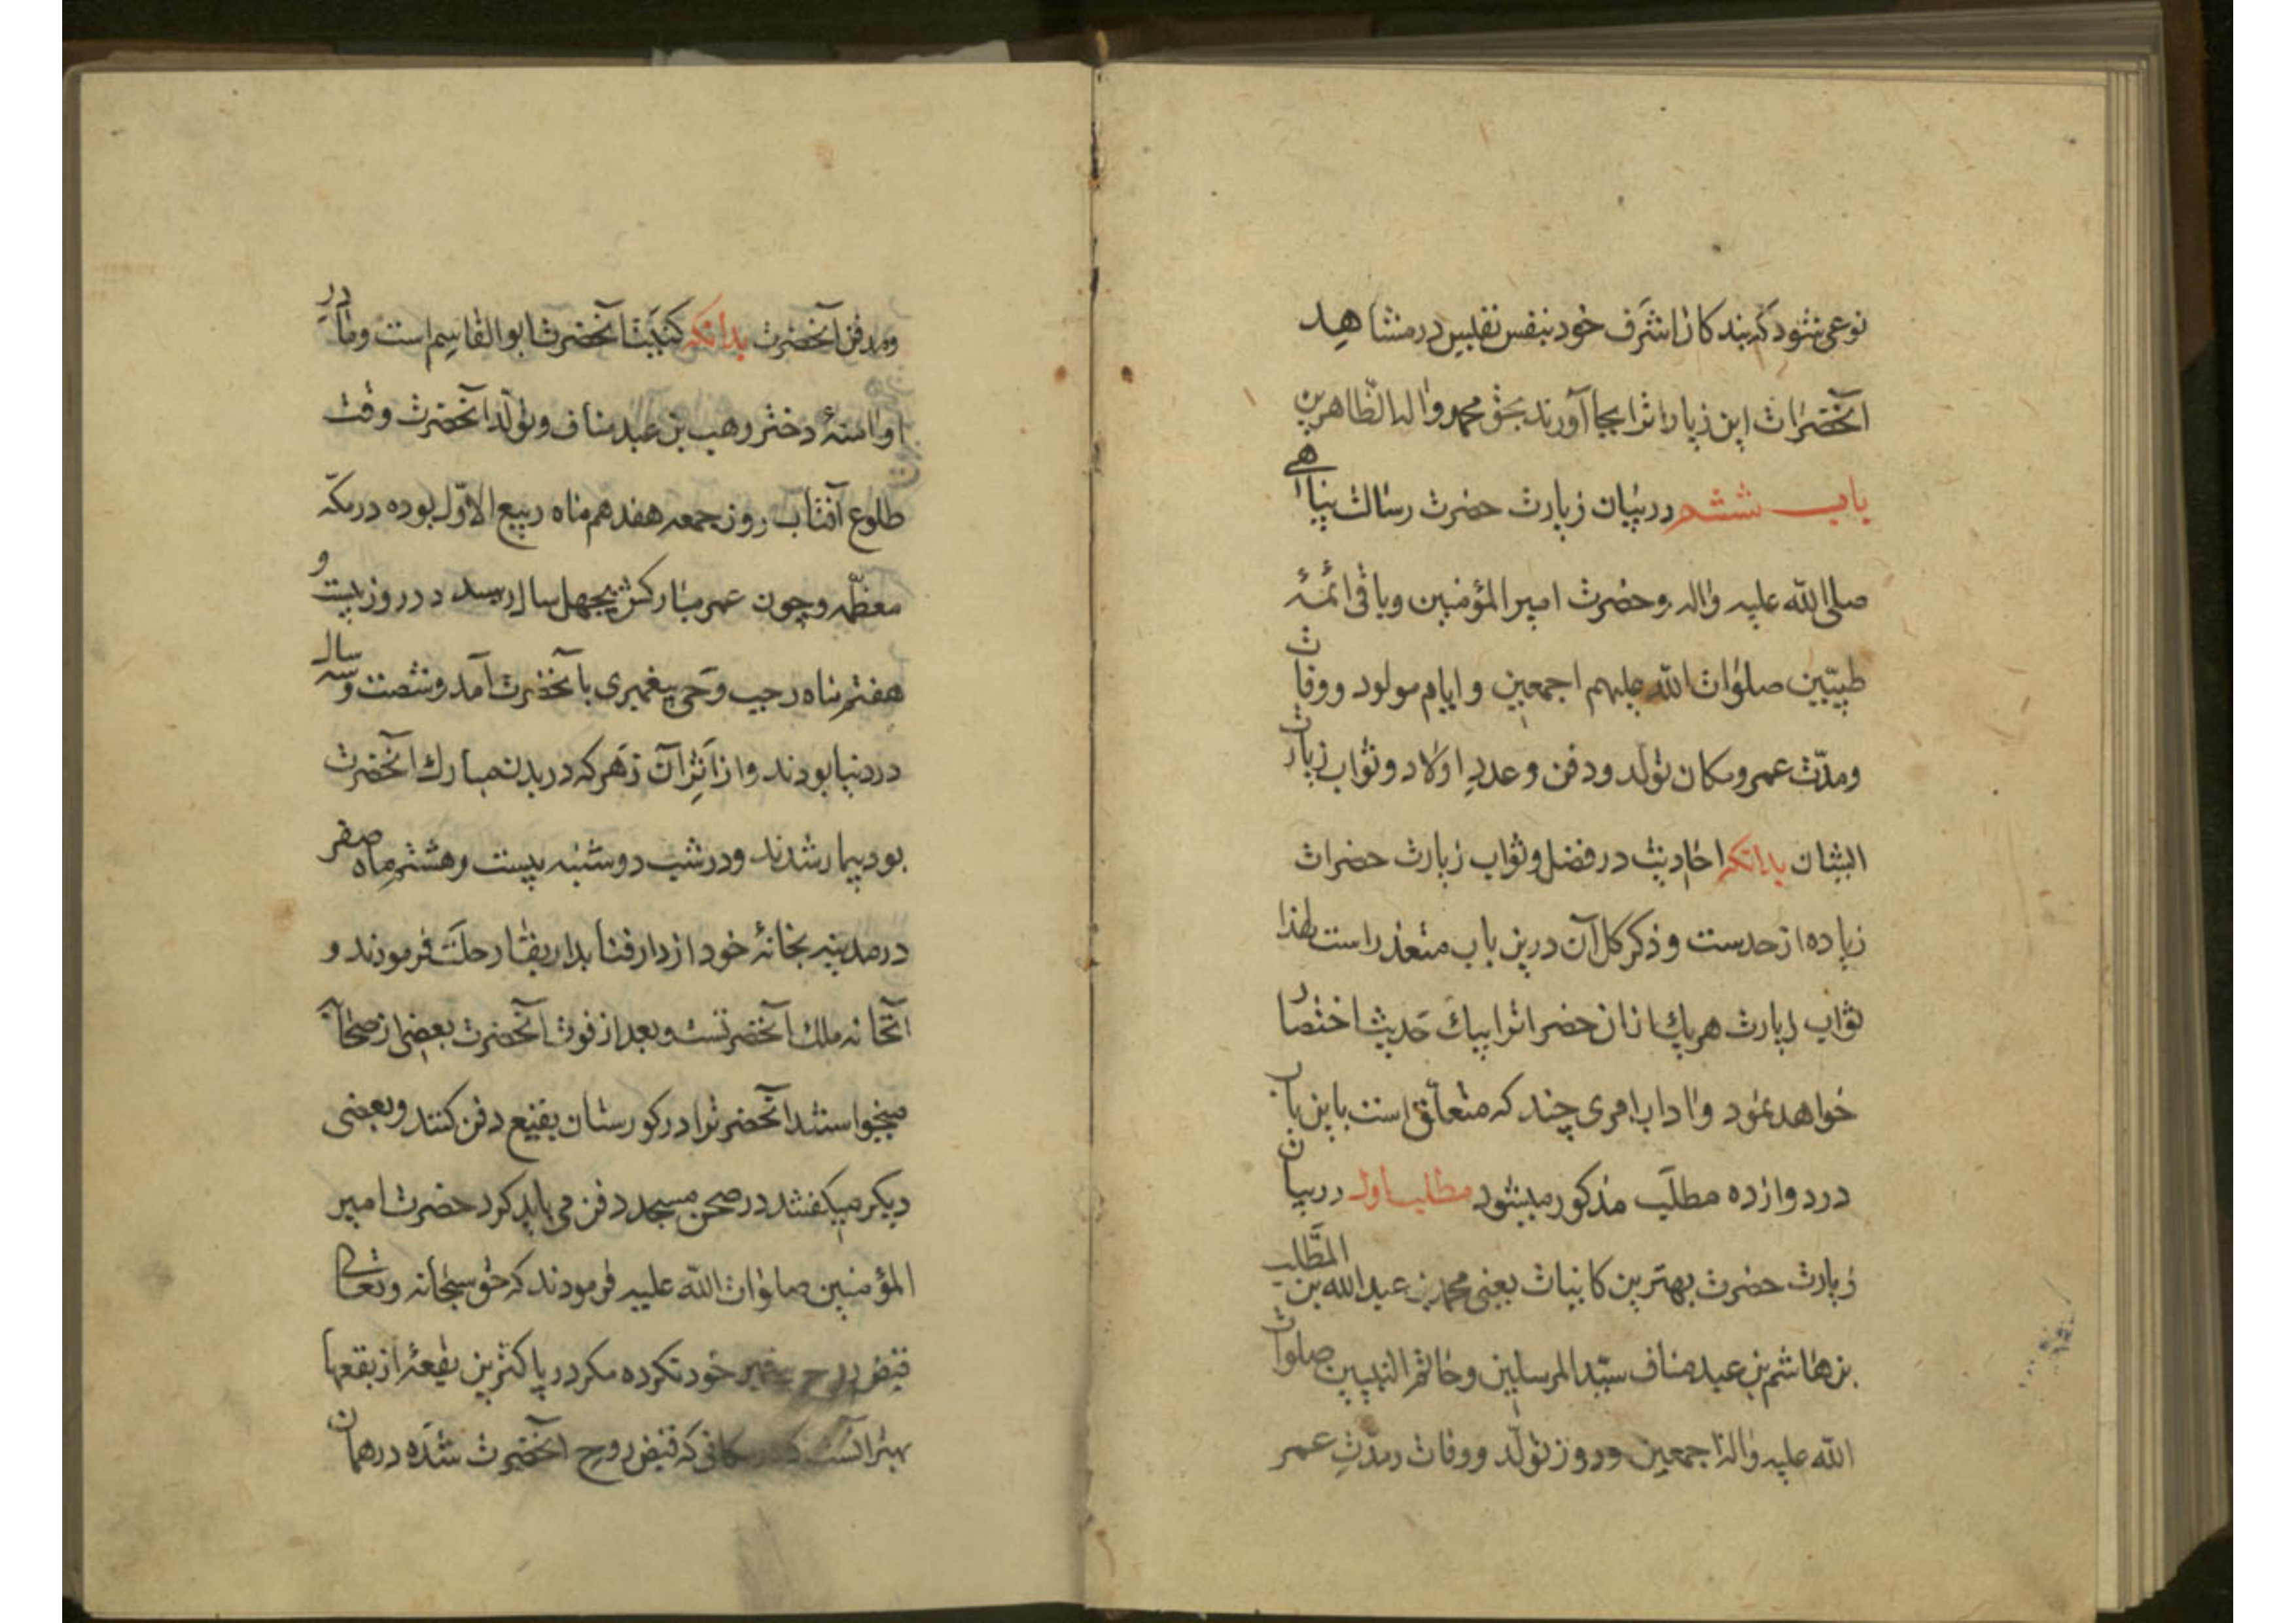 نوعی شود که بندکان اشرف خود بنفس نفیس در مشاهد
آنحضرات این زیارات را بجا آورند بحق محمد واله الطاهرین
باب ششم در بیان زیارت حضرت رسالت پناهی
صلی الله علیه واله وحضرت امیر المؤمنین وباقی ائمۀ
طیبین صلوات الله علیهم اجمعین و ایام مولود ووفات
ومدّت عمر ومکان تولد ودفن وعددِ اولاد وثواب زیارت
ایشان بدانکه احادیث در فضل وثواب زیارت حضرات
زیاده از حدست وذکر کل آن درین باب متعذر است لهذا
ثواب زیارت هر یك ازان حضراترا بیك حَدیث اختصار
خواهد نمود واداب امری چند که متعلّق است باین باب
در دوازده مطلَب مذکور میشود مطلب اول در بیان
زیارت حضرت بهترین کاینات یعنی محمد بن عبد الله بن المطَّلب
بن هاشم بن عبد مناف سیّد المرسلین وخاتم النبیین صلوات
الله علیه واله اجمعین وروز تولّد ووفات ومدّتِ عمر
ومدفن آنحضرت بدانکه کنیَت آنحضرت ابو القاسِم است ومادر
او آمنۀ دختر وهب بن عبد مناف وتولّد آنحضرت وقت
طلوع آفتاب روز جمعه هفدهم ماه ربیع الاوّل بوده در مکّه
معظّمه وچون عمر مبارکش بچهل سال رسید در روز بیست و
هفتم ماه رجب وَحی پیغمبری بآنحضرت آمد وشصت وسه سال
در دنیا بودند واز اَثرِ آن زَهر که در بدن مبارك آنحضرت
بود بیمار شدند ودر شب دوشنبه بیست وهشتم ماه صفر
در مدینه بخانۀ خود از دار فنا بدار بقا رحلَت فرمودند و
آنخانه ملك آنحضرتست وبعد از فوت آنحضرت بعضی از صحابه
میخواستند آنحضرترا در کورستان بقیع دفن کنند وبعضی
دیکر میکفتند در صحن مسجد دفن می باید کرد حضرت امیر
المؤمنین صلوات الله علیه فرمودند که حق سبحانه وتعالی
قبض روح پیغمبر خود نکرده مکر در پاکترین بقعۀ از بقعها
بهتر آنست که در مکانی که قبض روح آنحضرت شدَه در همان